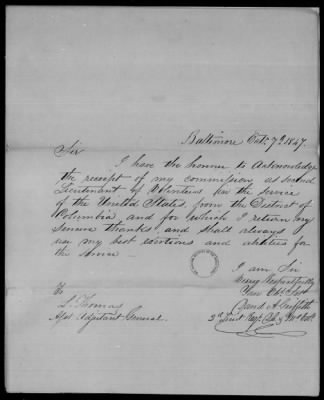 Baltimore Octr 7th 1847.
Sir
I have the honner to Acknowledge
the receipt of my commission as second
Lieutenant of Volunteers for the service
of the United States from the District of
Columbia, and for which I return my
sincere thanks and shall always
use my best exertions and abilities for
the service
I am Sir
Very Respectfully
Your Obt Servt
David A. Griffith
2d Lieut Regt
To
L. Thomas
Asst Adjutant General.